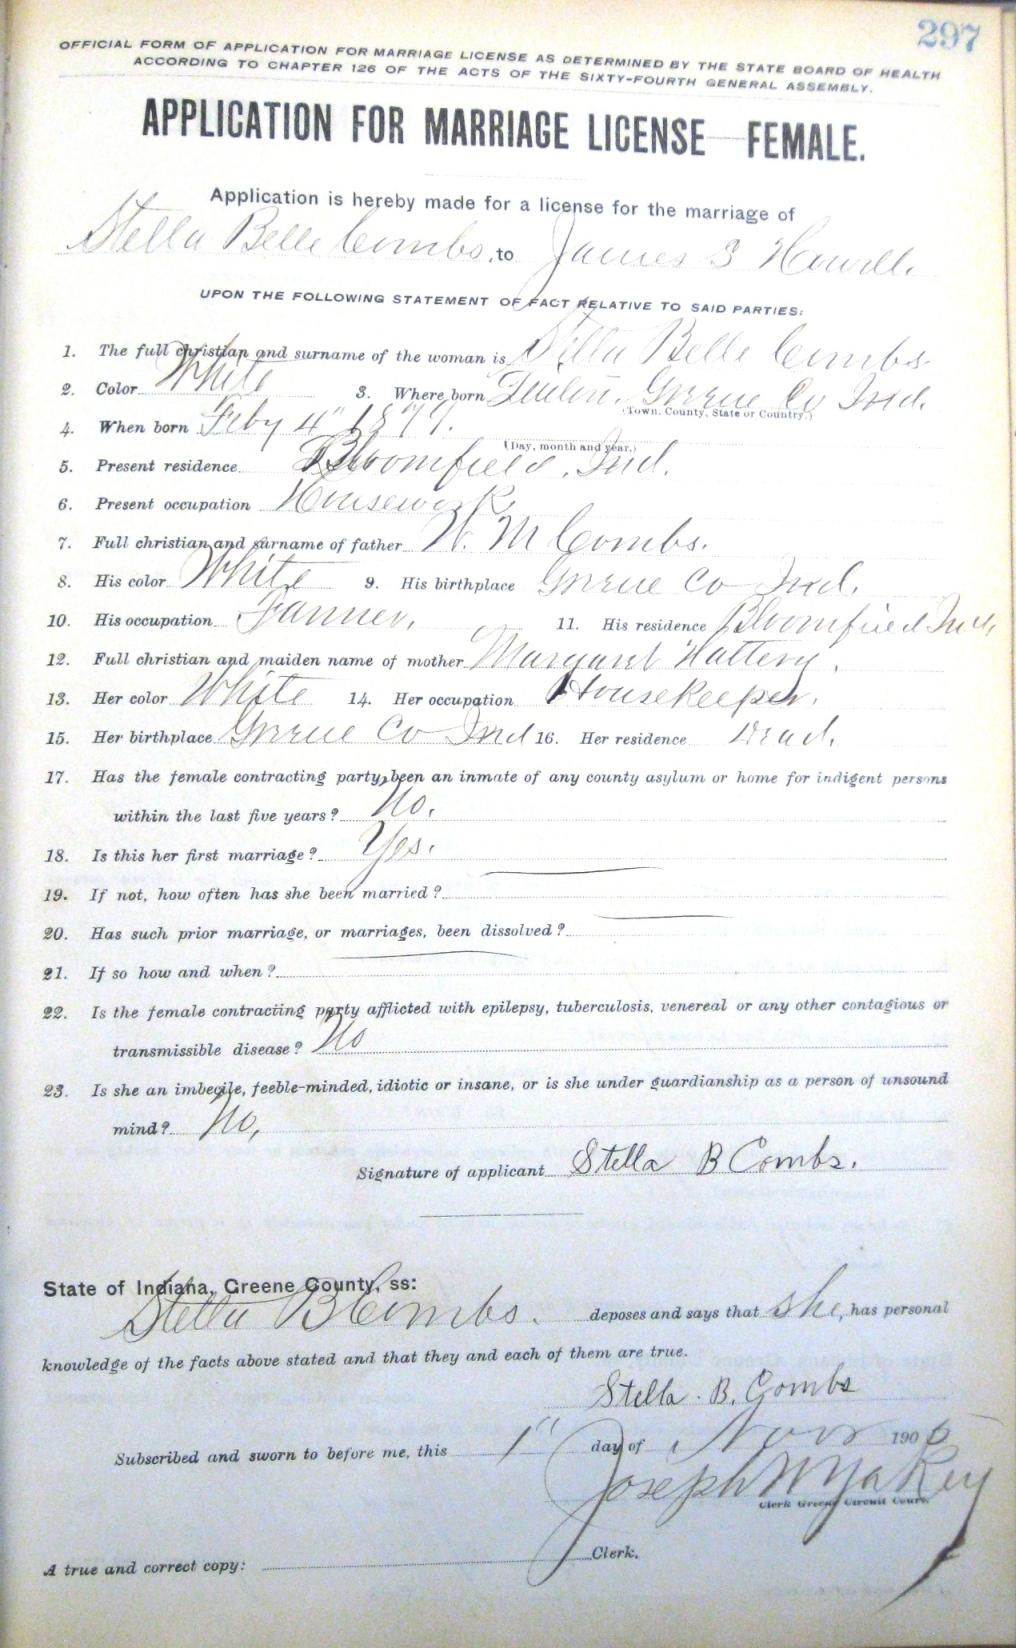 297
OFFICIAL FORM OF APPLICATION FOR MARRIAGE LICENSE AS DETERMINED BY THE STATE BOARD OF HEALTH
ACCORDING TO CHAPTER 126 OF THE ACTS OF THE SIXTY-FOURTH GENERAL ASSEMBLY.
APPLICATION FOR MARRIAGE LICENSE—FEMALE.
Application is hereby made for a license for the marriage of
Stella Belle Combs, to James S Howell.
UPON THE FOLLOWING STATEMENT OF FACT RELATIVE TO SAID PARTIES:
1. The full christian and surname of the woman is Stella Belle Combs
2. Color White 3. Where born Greene Co Ind.
(Town. County, State or Country.)
4. When born Feby 4" 1877.
(Day, month and year.)
5. Present residence Bloomfield, Ind.
6. Present occupation Housework
7. Full christian and surname of father W. M Combs.
8. His color White 9. His birthplace Greene Co Ind.
10. His occupation Farmer. 11. His residence Bloomfield Ind.
12. Full christian and maiden name of mother Margaret Hattery.
13. Her color White 14. Her occupation Housekeeper.
15. Her birthplace Greene Co Ind 16. Her residence Dead.
17. Has the female contracting party, been an inmate of any county asylum or home for indigent persons
within the last five years? No.
18. Is this her first marriage? Yes.
19. If not, how often has she been married?
20. Has such prior marriage, or marriages, been dissolved?
21. If so how and when?
22. Is the female contracting party afflicted with epilepsy, tuberculosis, venereal or any other contagious or
transmissible disease? No
23. Is she an imbecile, feeble-minded, idiotic or insane, or is she under guardianship as a person of unsound
mind? No,
Signature of applicant Stella B Combs.
State of Indiana, Greene County, ss:
Stella B Combs. deposes and says that she, has personal
knowledge of the facts above stated and that they and each of them are true.
Stella. B. Combs
Subscribed and sworn to before me, this 1" day of Nov 190
Joseph W Yakey
Clerk Greene Circuit Court.
A true and correct copy: Clerk.